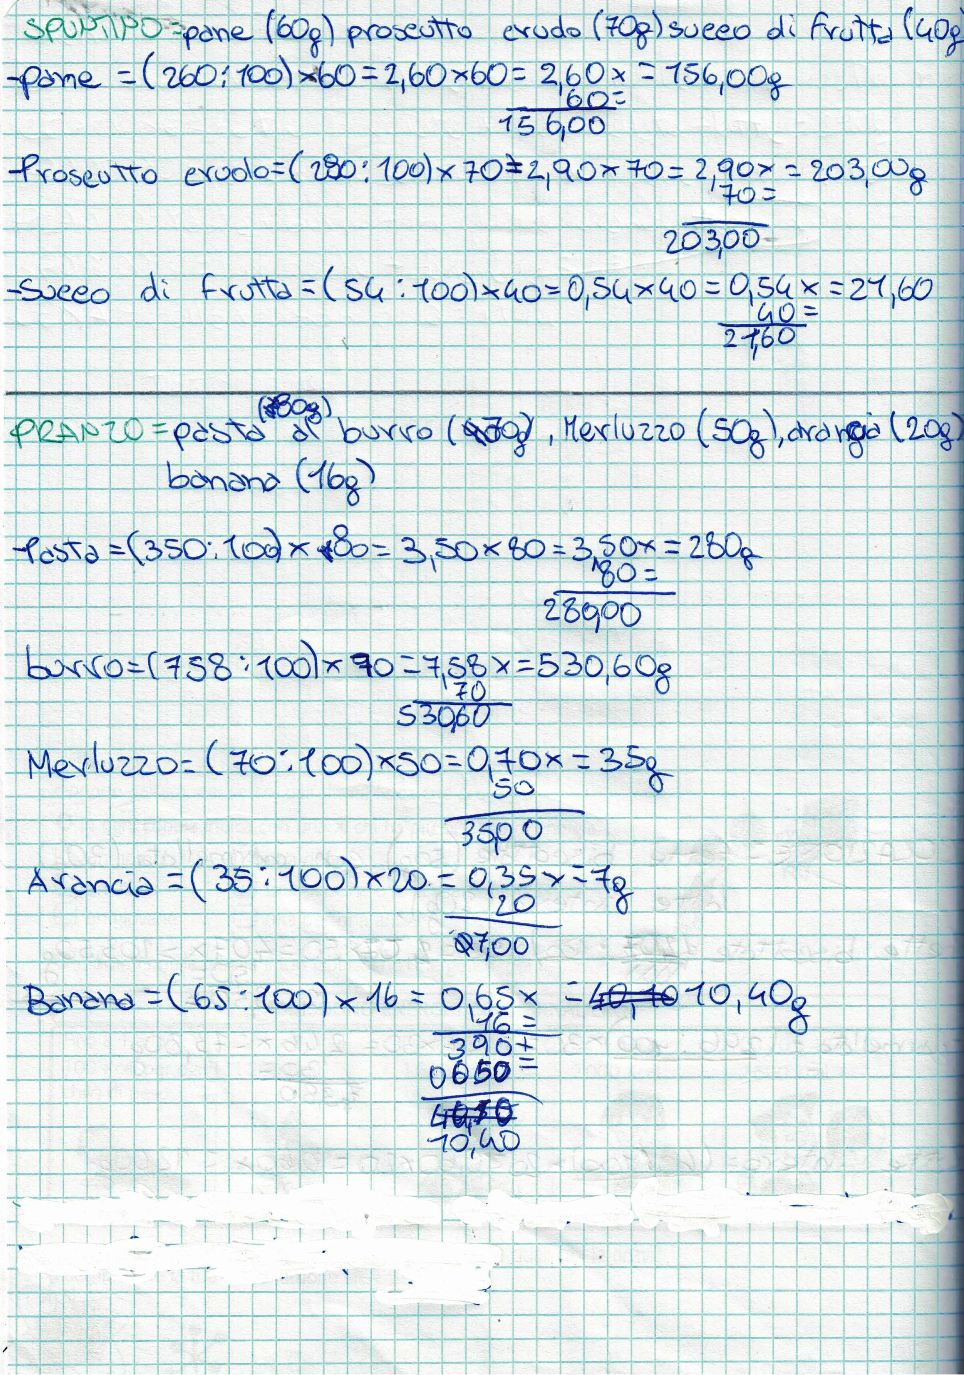 SPUNTINO=pane (60g) prosciutto crudo (70g) succo di frutta (40g)
-pane = (260:100)×60=2,60×60= 2,60× = 156,00g
60=
156,00
-Prosciutto crudo=(290:100)×70=2,90×70=2,90× =203,00g
70=
203,00
-Succo di frutta=(54:100)×40=0,54×40=0,54× =21,60
40=
21,60
(80g)
PRANZO=pasta al burro (70g), Merluzzo (50g), arancia (20g)
banana (16g)
-Pasta=(350:100)×80=3,50×80=3,50×=280g
80=
280,00
burro=(758:100)×70=7,58×=530,60g
70
530,60
Merluzzo=(70:100)×50=0,70×=35g
50
35,00
Arancia=(35:100)×20=0,35×=7g
20
07,00
Banana=(65:100)×16=0,65× =40,10 10,40g
16=
390+
0650=
10,40